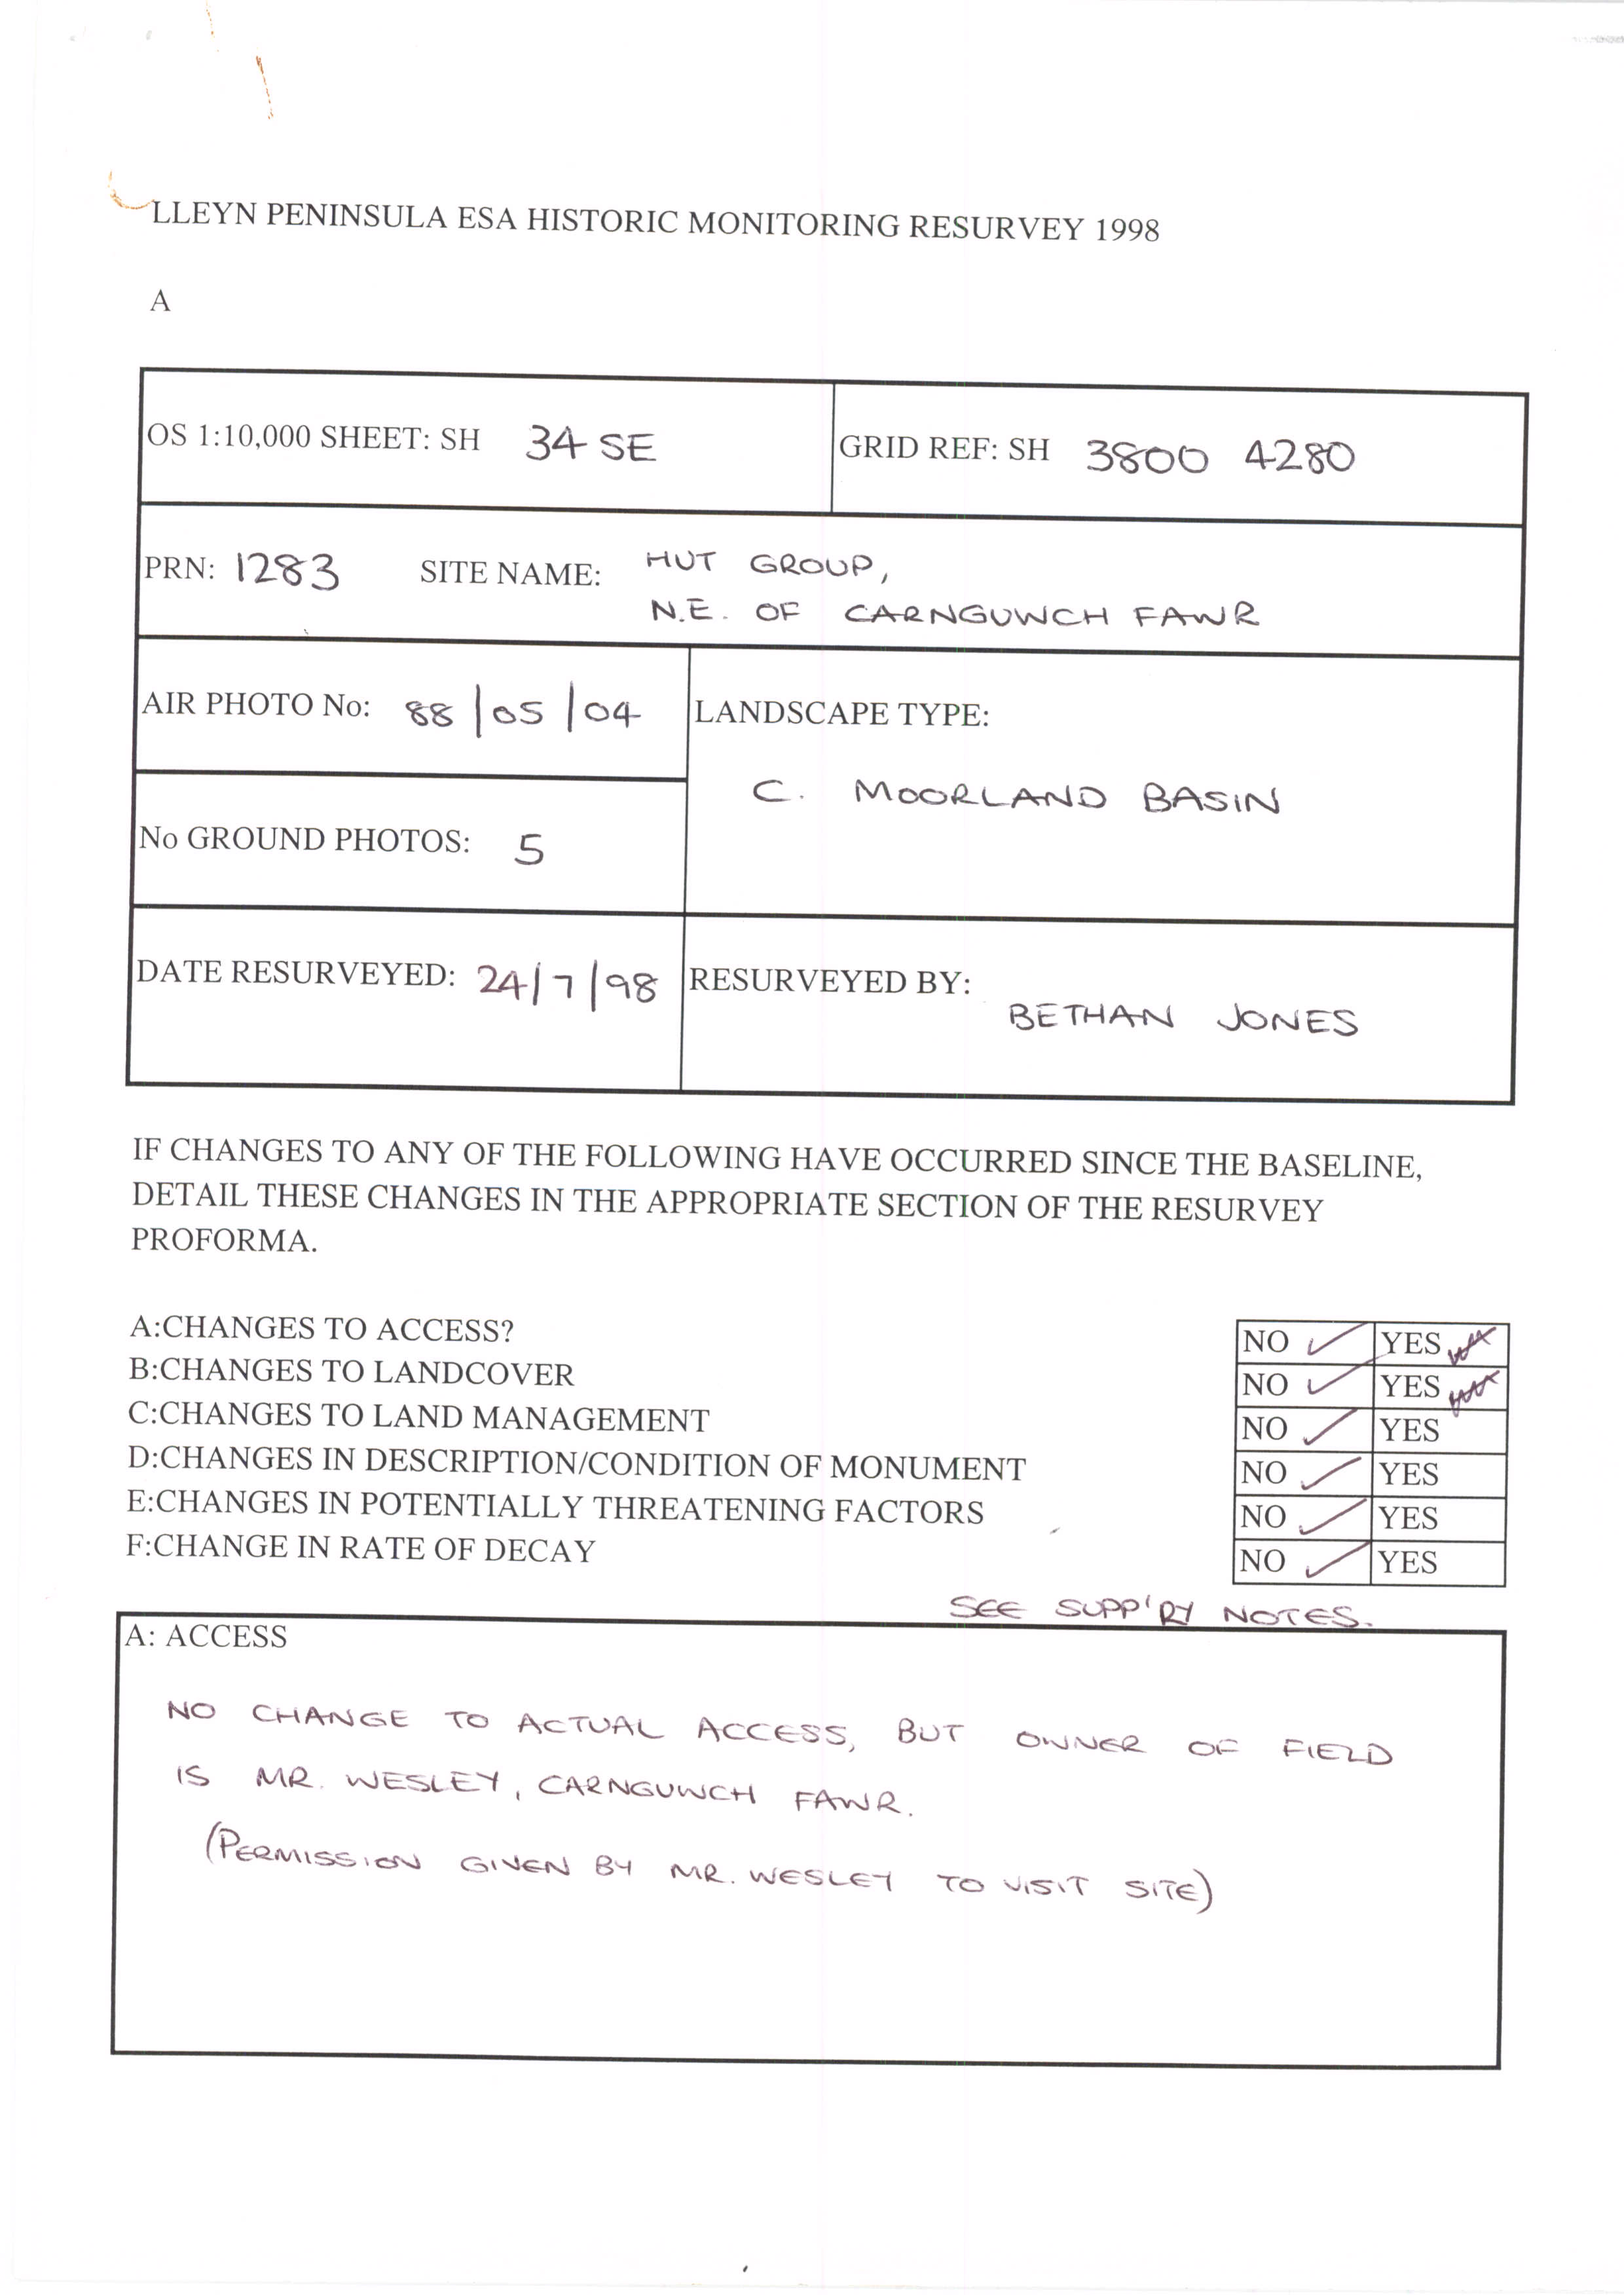 LLEYN PENINSULA ESA HISTORIC MONITORING RESURVEY 1998
A
OS 1:10,000 SHEET: SH 34 SE
GRID REF: SH 3800 4280
PRN: 1283 SITE NAME: HUT GROUP,
N.E. OF CARNGUWCH FAWR
AIR PHOTO No: 88/05/04
LANDSCAPE TYPE:
C. MOORLAND BASIN
No GROUND PHOTOS: 5
DATE RESURVEYED: 24/7/98
RESURVEYED BY:
BETHAN JONES
IF CHANGES TO ANY OF THE FOLLOWING HAVE OCCURRED SINCE THE BASELINE,
DETAIL THESE CHANGES IN THE APPROPRIATE SECTION OF THE RESURVEY
PROFORMA.
A:CHANGES TO ACCESS? NO ✓ YES
B:CHANGES TO LANDCOVER NO ✓ YES
C:CHANGES TO LAND MANAGEMENT NO ✓ YES
D:CHANGES IN DESCRIPTION/CONDITION OF MONUMENT NO ✓ YES
E:CHANGES IN POTENTIALLY THREATENING FACTORS NO ✓ YES
F:CHANGE IN RATE OF DECAY NO ✓ YES
SEE SUPP'RY NOTES.
A: ACCESS
NO CHANGE TO ACTUAL ACCESS, BUT OWNER OF FIELD
IS MR. WESLEY, CARNGUWCH FAWR.
(PERMISSION GIVEN BY MR. WESLEY TO VISIT SITE)